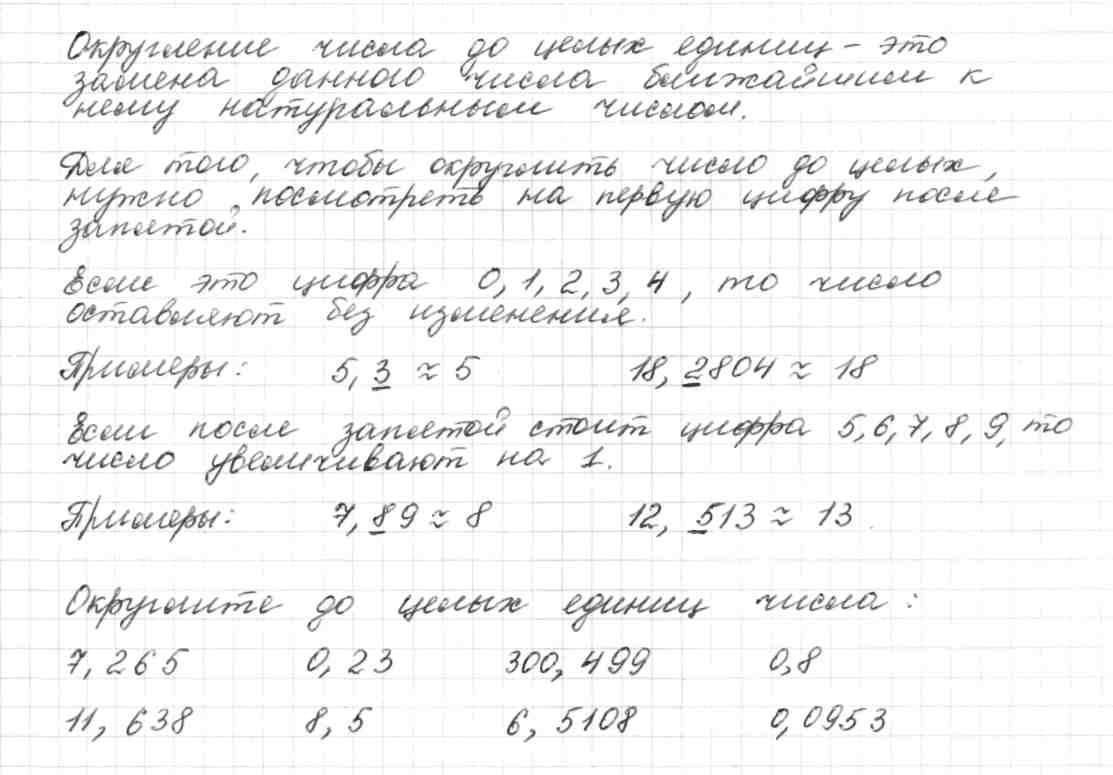 Округление числа до целых единиц - это
замена данного числа ближайшим к
нему натуральным числом.
Для того, чтобы округлить число до целых,
нужно посмотреть на первую цифру после
запятой.
Если это цифра 0, 1, 2, 3, 4, то число
оставляют без изменения.
Примеры: 5,3 ≈ 5 18,2804 ≈ 18
Если после запятой стоит цифра 5, 6, 7, 8, 9, то
число увеличивают на 1.
Примеры: 7,89 ≈ 8 12,513 ≈ 13
Округлите до целых единиц числа:
7,265 0,23 300,499 0,8
11,638 8,5 6,5108 0,0953